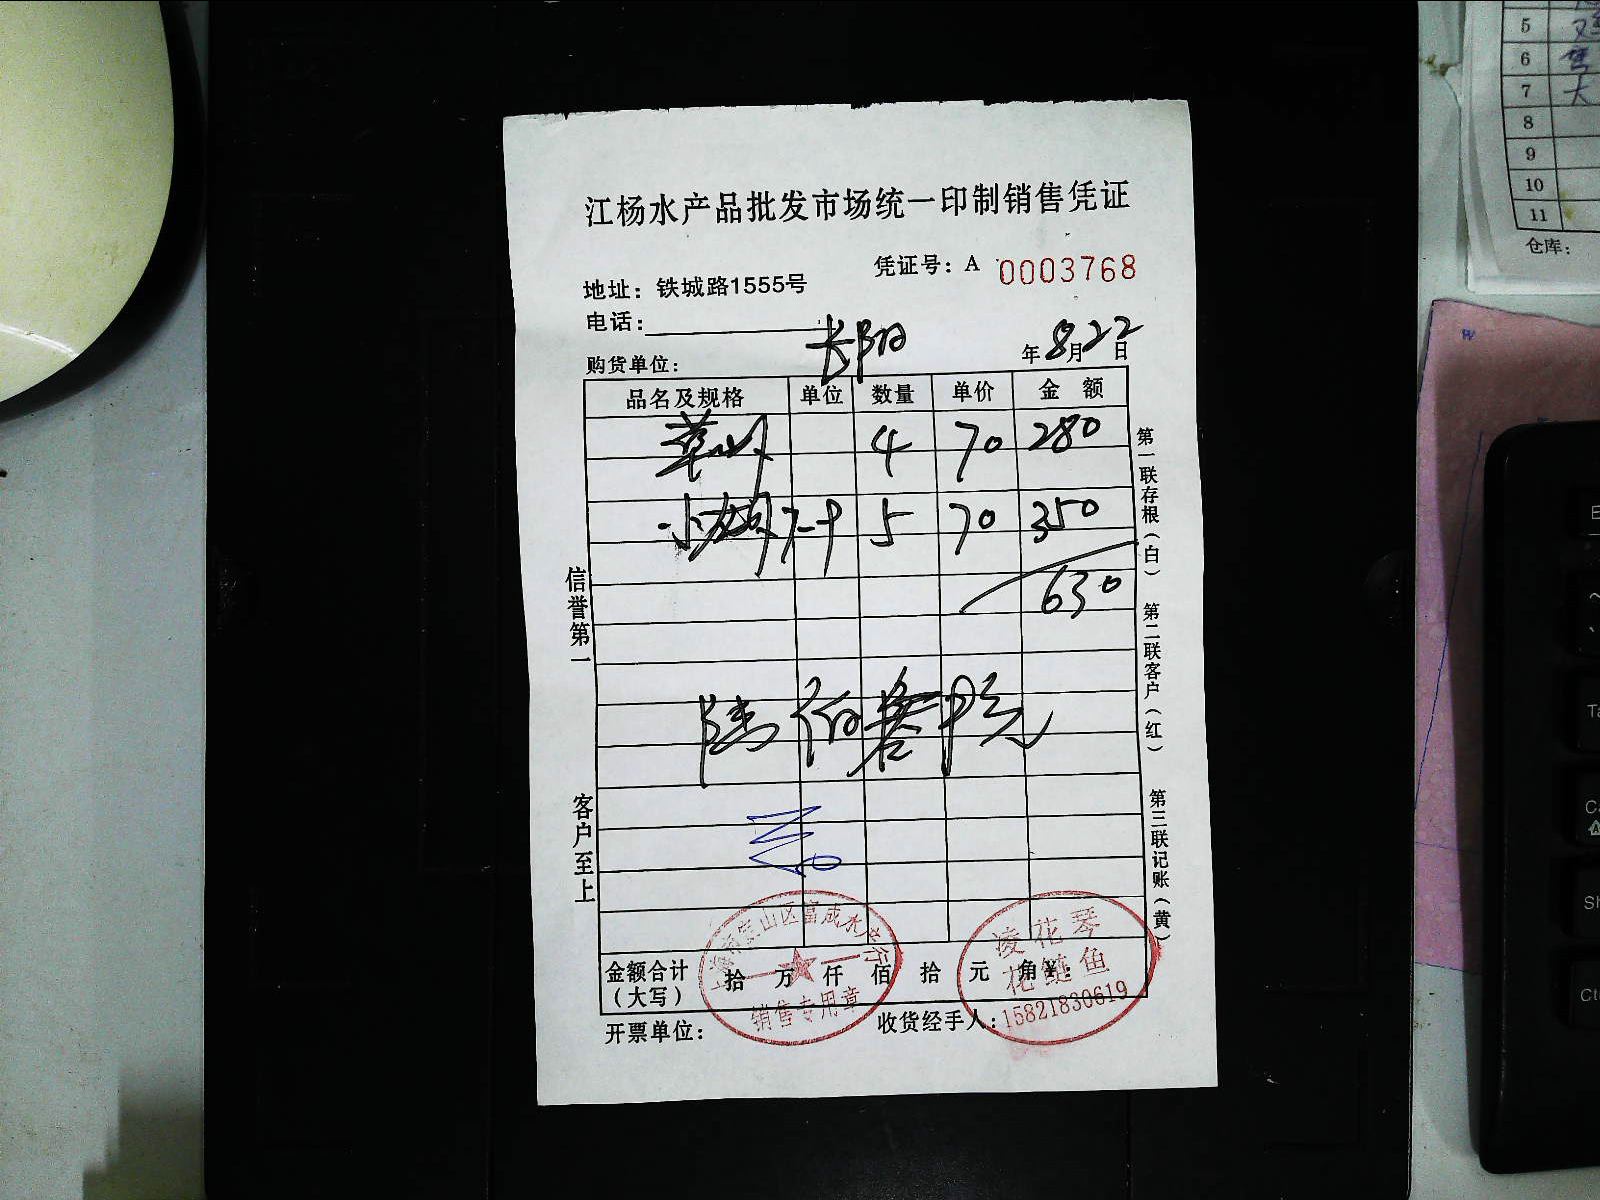 江杨水产品批发市场统一印制销售凭证
凭证号：A 0003768
地址：铁城路1555号
电话：
购货单位： 长阳
年8月22日
品名及规格 单位 数量 单价 金 额
4 70 280
小 7-9 5 70 350
630
陆佰叁十元
信誉第一
客户至上
第一联存根（白）
第二联客户（红）
第三联记账（黄）
金额合计（大写） 拾 万 仟 佰 拾 元 角 ¥：
开票单位：
收货经手人：
上海市宝山区富成水产行
销售专用章
凌花琴
花鲢鱼
15821830619
5
6
7 大
8
9
10
11
仓库：